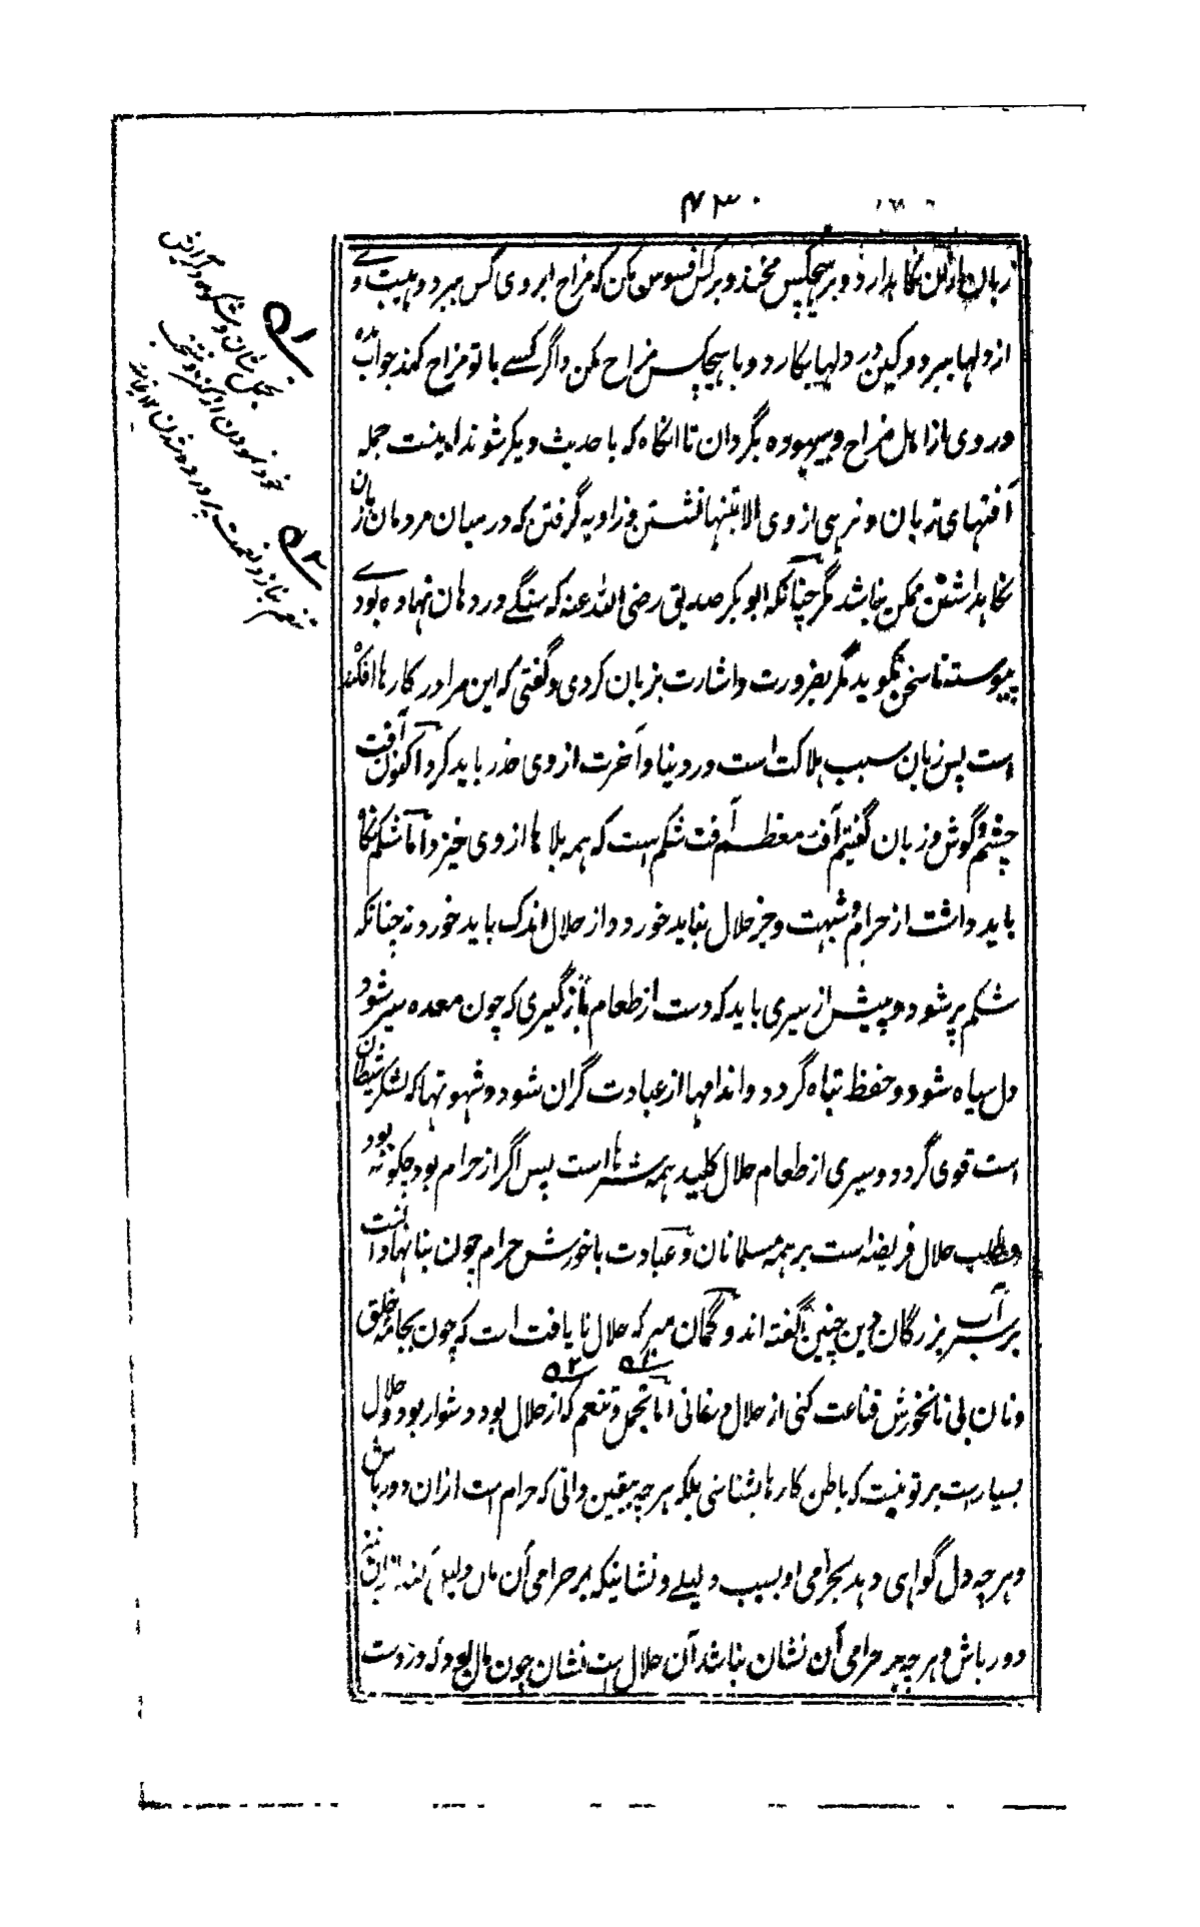 ۴۳۰
زبان ازین نگاهدار و بر هیچکس مخند و برکس افسوس مکن که مزاح ابروی کس ببرد و هیبت وے
از دلها ببرد و کین در دلها بکارد و با هیچکس مزاح مکن و اگر کسے با تو مزاح کند جواب مده
و روی از اهل مزاح و بیهوده بگردان تا انگاه که با حدیث دیگر شوند اینست جمله
آفتهای زبان و نرهی از وی الا بتنها نشستن و زاویه گرفتن که در میان مردمان زبان
نگاهداشتن ممکن نباشد مگر چنانکه ابو بکر صدیق رضی الله عنه که سنگے در دهان نهاده بودے
پیوسته تا سخن نگوید مگر بضرورت و اشارت بزبان کردی و گفتی که این مرا در کارها افکنده
است پس زبان سبب هلاکت است در دنیا و آخرت از وی حذر باید کرد اکنون آفت
چشم و گوش و زبان گفتیم آفت معظم آفت شکم است که همه بلاها از وی خیزد اما شکم نگاه
باید داشت از حرام و شبهت و جز حلال نباید خورد و از حلال اندک باید خورد نه چنانکه
شکم پر شود و پیش از سیری باید که دست از طعام بازگیری که چون معده سیر شود
دل سیاه شود و حفظ تباه گردد و اندامها از عبادت گران شود و شهوتها که لشکر شیطان
است قوی گردد و سیری از طعام حلال کلید همه شرها است پس اگر از حرام بود چگونه بود
و طلب حلال فریضه است بر همه مسلمانان و عبادت با خورش حرام چون بنا نهادنست
بر سر آب بزرگان دین چنین گفته اند و گمان مبر که حلال نایافت است که چون بجامه خلق
و نان بی نانخورش قناعت کنی از حلال درنمانی اما تجمل و تنعم که از حلال بود دشوار بود و حلال
بسیارست بر تو نیست که باطن کارها بشناسی بلکه هرچه بیقین دانی که حرام است ازان دور باش
و هرچه دل گواهی دهد بحرامی او بسبب دلیلے و نشانیکه بر حرامی آن مال دلیل کند ازان نیز
دور باش و هرچه بر حرامی آن نشان نباشد آن حلال است نشان چون مال بود که در دست
۵۱
تجمل شان و شکوه و آرایش
خود نمودن از کنز و منتخب
۵۲
تنعم بناز و نعمت پرورده شدن